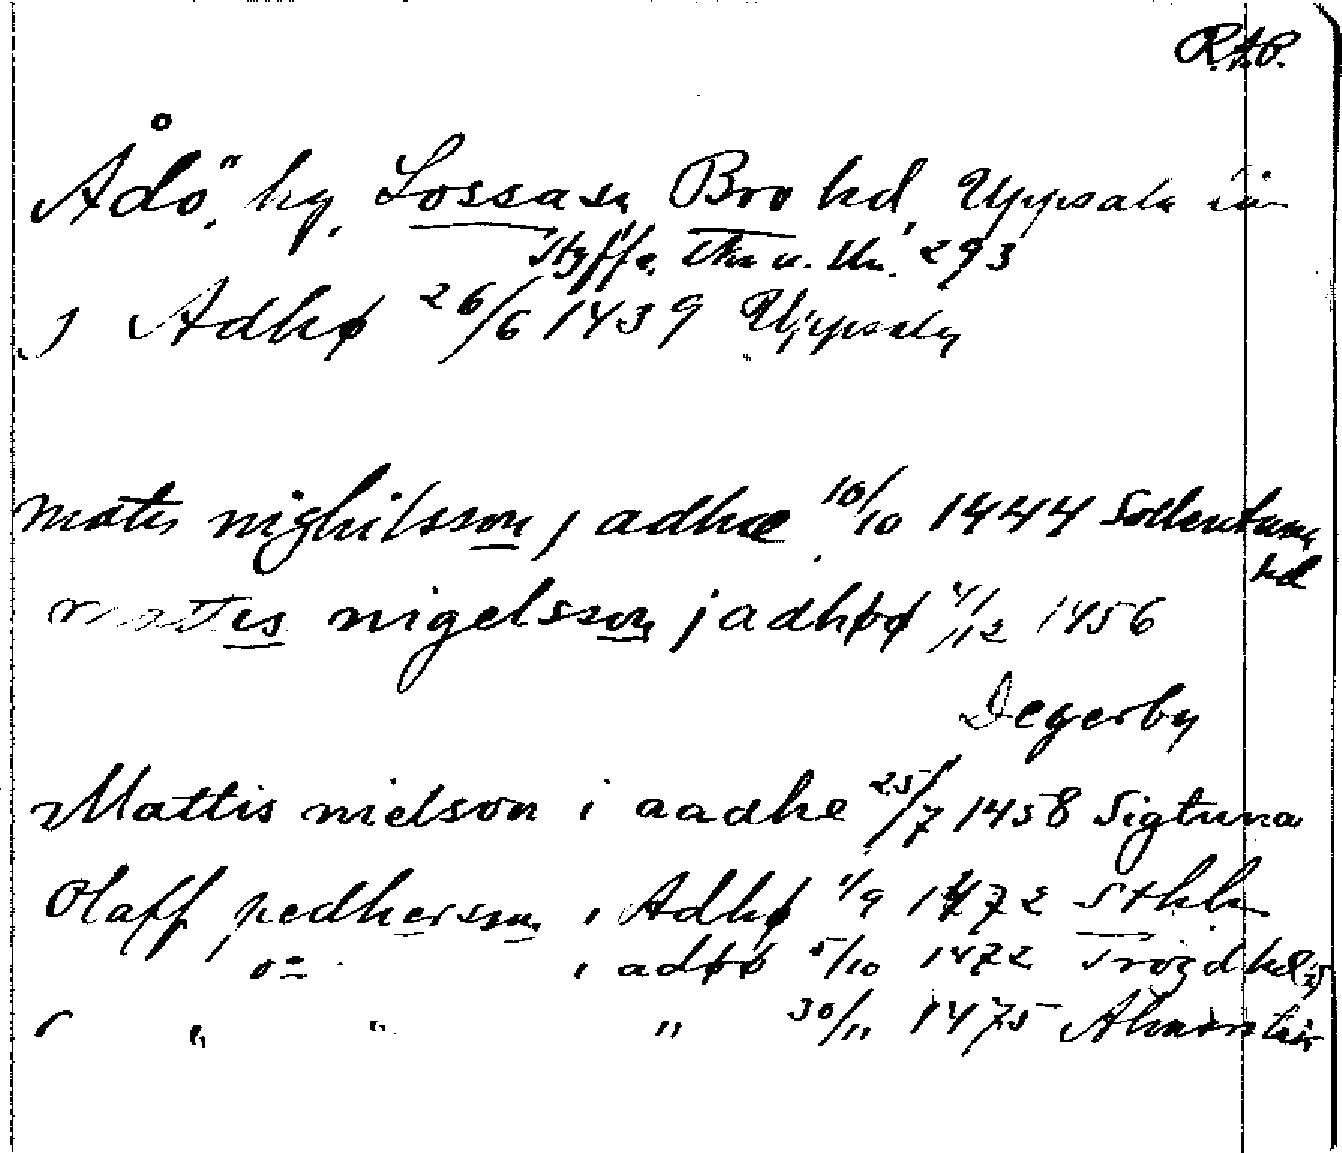 R.A.P.
Ådö, hg, Lossa sn Bro hd, Uppsala län
Styffe, Skand. u. Un. 293
j Adhø 26/6 1439 Uppsala
matis nighilsson j adhæ 10/10 1444 Sollentuna
hd
mattis nigelsson j adhøø 4/12 1456
Degerby
Mattis nielson i aadhe 25/7 1458 Sigtuna
Olaff pedherson i Adhø 1/9 1472 Sthlm
on i adøø 5/10 1472 Trögd hd
" " " 30/11 1475 Almarstäk